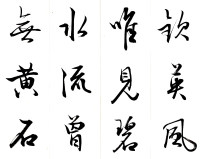 欽英風
唯見碧
水流曾
無黃石